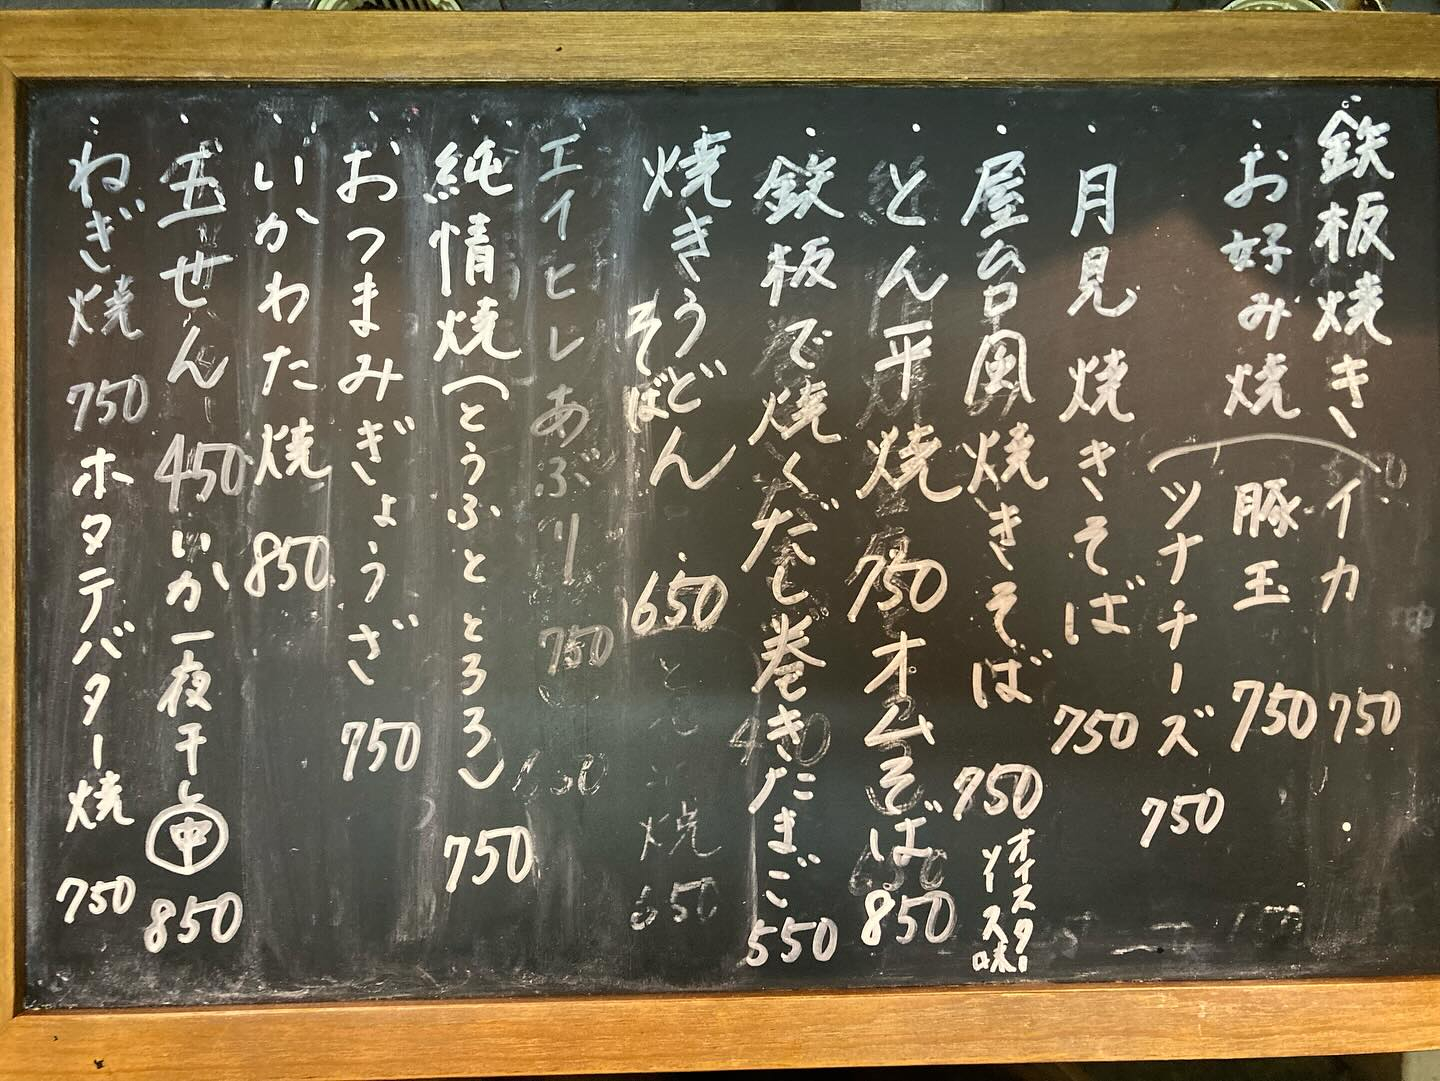 鉄板焼き、イカ 750
お好み焼 豚玉 750
ツナチーズ 750
月見焼きそば 750
屋台風焼きそば 750 オイスターソース味
とん平焼 750 オムそば 850
鉄板で焼くだし巻きたまご 550
焼きうどん 650
そば
エイヒレあぶり 750
純情焼(とうふととろろ) 750
おつまみぎょうざ 750
いかわた焼 850
玉せん 450 いか一夜干し 中 850
ねぎ焼 750 ホタテバター焼 750
焼 650